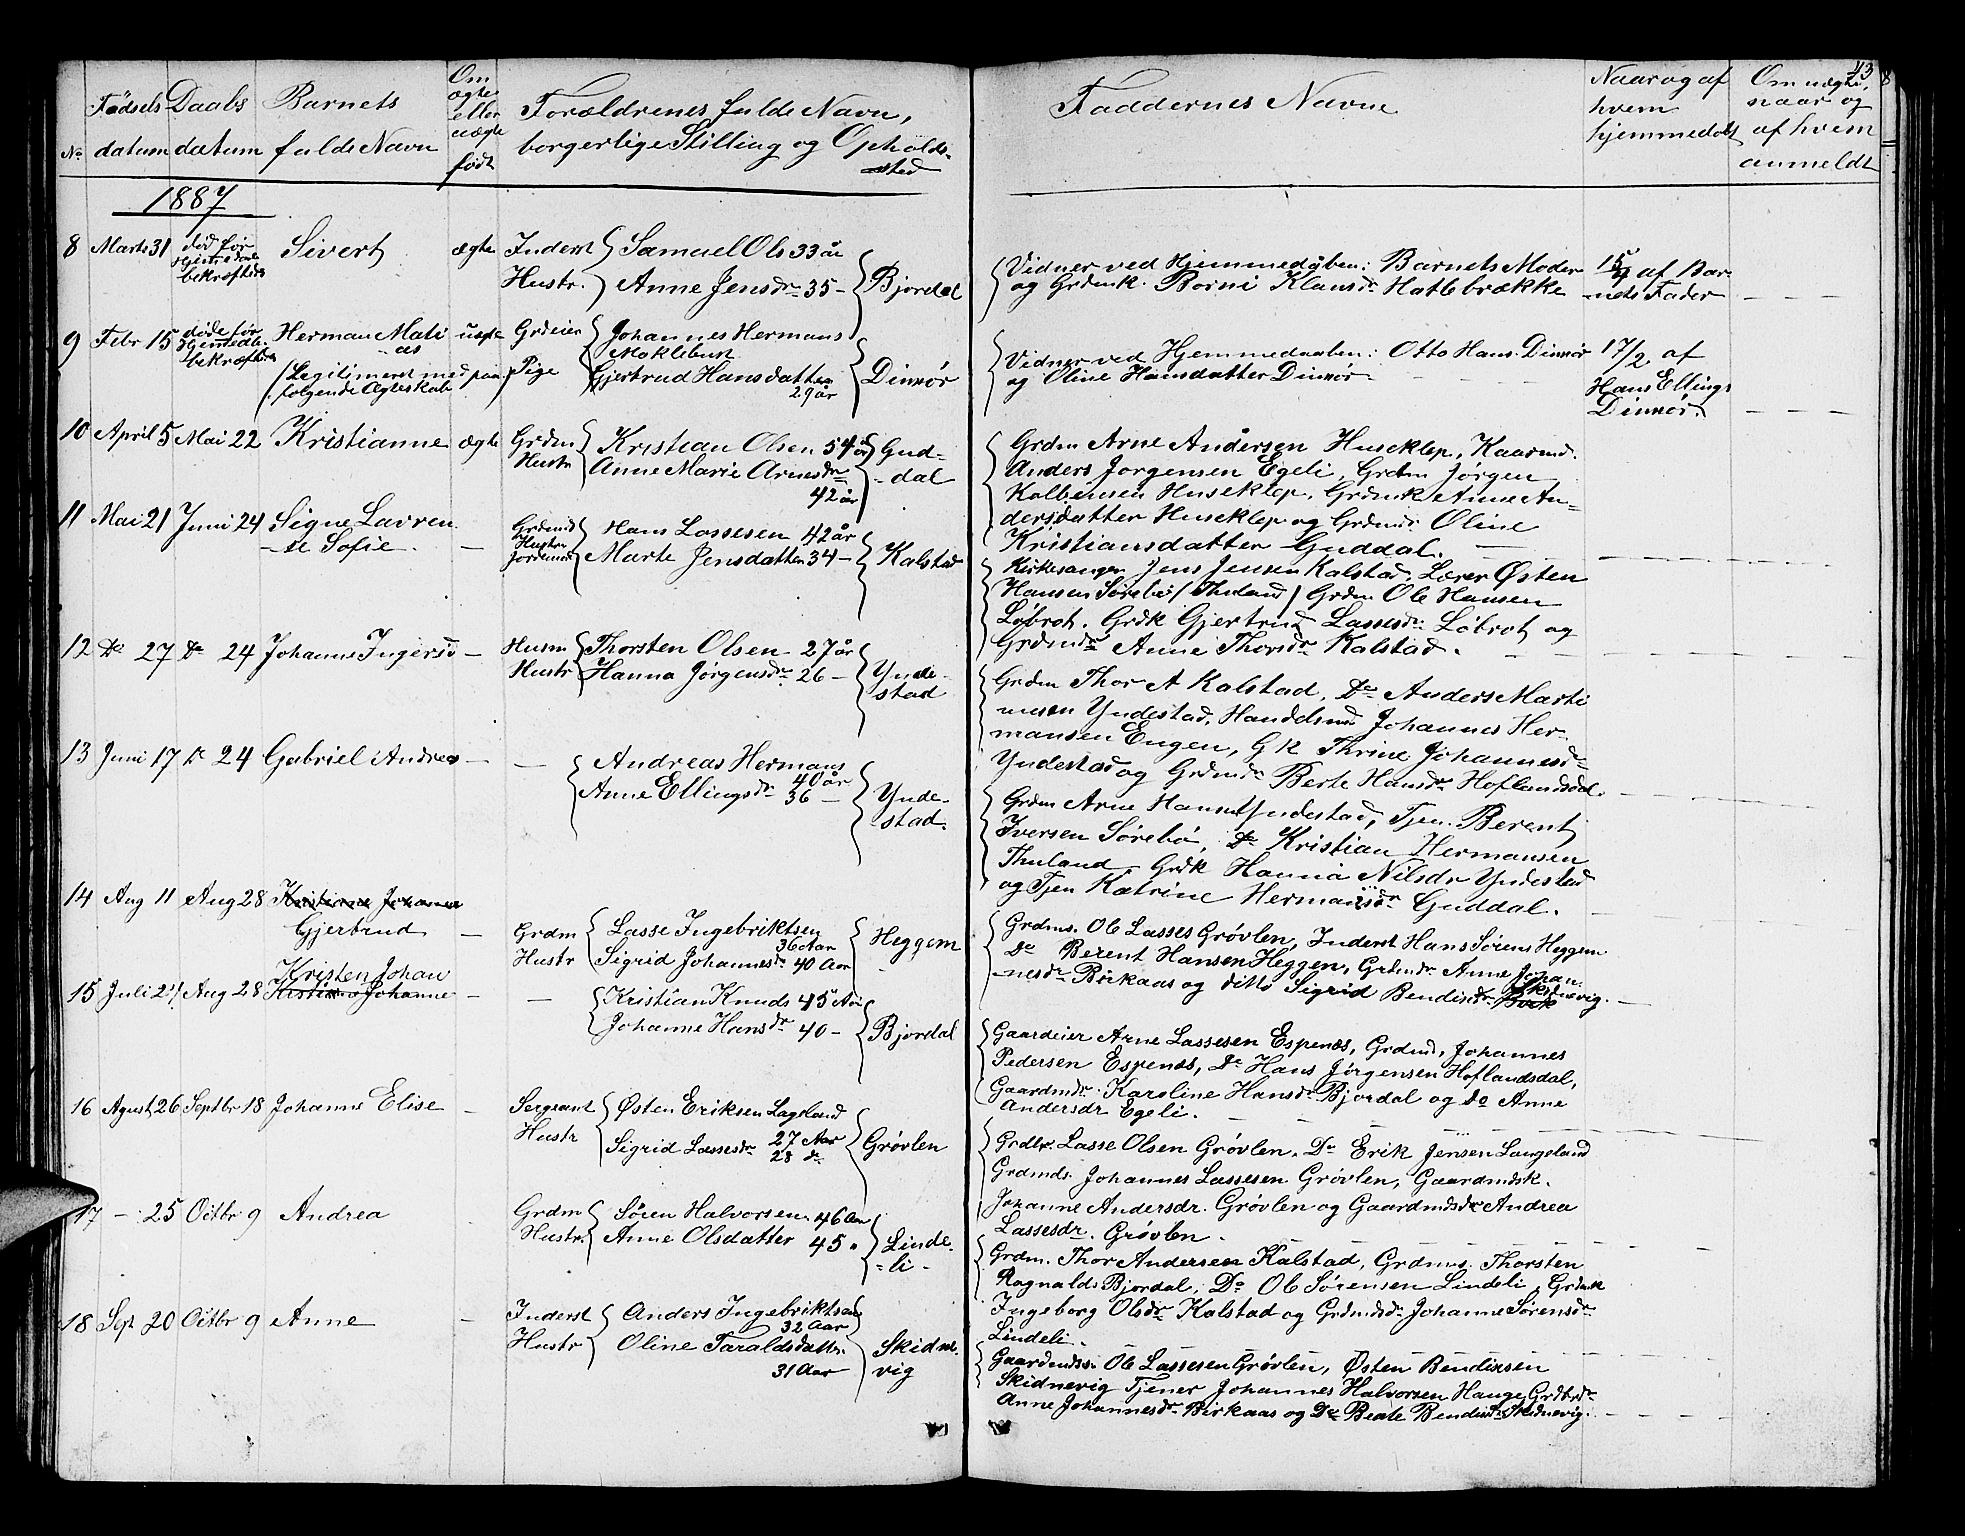 No Fødsels datum Daabs datum Barnets fulde Navn Om ægte eller uægte født Forældrenes fulde Navn, borgerlige Stilling og Opholds-sted
Faddernes Navne Naar og af hvem hjemmedøbt Om uægte, naar og af hvem anmeldt
43
1887
8 Marts 31 død før Hjemmedaab bekræftedes Sivert ægte Inderst Samuel Ols 33 år
Hustr. Anne Jensdr 35 - Bjordal
Vidner ved Hjemmedåben: Barnets Moder
og Grdmk. Borni Klausdr Hatlebrække
15/4 af Bar-
nets Fader
9 Febr 15 døde før Hjemmedb. bekræftedes Herman Mati
as
(Legitimeret med paa-
følgende Ægteskab
uægte Grdeier Johannes Hermans
Moklebust
Pige Gjertrud Hansdatter
29 år
Dinnør
Vidner ved Hjemmedaaben: Otto Hans. Dinnør
og Oline Hansdatter Dinnør
17/2 af
Hans Ellings
Dinnør.
10 April 5 Mai 22 Kristianne ægte Grdm Kristian Olsen 54 år
Hustr Anne Marie Arnesdr
42 år
Gud-
dal
Grdm Arne Andersen Huseklep, Kaarmd.
Anders Jorgensen Egeli, Grdm Jørgen
Kolbensen Huseklep, Grdmk Anne An-
dersdatter Huseklep og Grdmdr Oline
Kristiansdatter Guddal.
11 Mai 21 Juni 24 Signe Lavren
se Sofie. - Grdmd Hans Lassesen 42 år
Hustru Jordemor Marte Jensdatter 34 - Kalstad
Kirkesanger Jens Jensen Kalstad. Lærer Østen
Hansen Sørebø / Thuland / Grdm Ole Hansen
Løbrot. Grdk Gjertrud Lassesdr. Løbrot og
Grdmdr Anne Thorsdr Kalstad.
12 Do 27 Do 24 Johanne Ingersd - Husm Thorsten Olsen 27 år
Hustr Hanna Jørgensdr 26 -
Ynde-
stad
Grdm Thor A Kalstad, Do Anders Marti
nusen Yndestad, Handelsmd Johannes Her-
mansen Engen, G K Thrine Johannesd
Yndestad og Grdmdr Berte Hansdr Hoflandsdal.
13 Juni 17 Do 24 Gabriel Andreas - - Andreas Hermans
40 år
Anne Ellingsdr 36 -
Ynde-
stad.
Grdm Arne Hansen Yndestad, Tjen. Berent
Iversen Sørebø, Do Kristian Hermansen
Thuland Grdk Hanna Nilsdr Yndestad
og Tjen Katrine Hermansdr Guddal.
14 Aug 11 Aug 28 Kristianne Johanne
Gjertrud - Grdm Lasse Ingebriktsen
36 Aar
Hustr Sigrid Johannesdr 40 Aar
Heggem
Grdms. Ole Lasses Grøvlen, Inderst Hans Sørens Heggem
Do Berent Hansen Heggen, Grdmdr Anne Johan-
nesdr Birkaas og ditto Sigrid Bendiksdr Skidnevig.
15 Juli 21 Aug 28 Kristen Johan
Kristianne Johanne - - Kristian Knuds 45 Aar
Johanne Hansdr 40 - Bjordal
Gaardeier Arne Lassesen Espenæs, Grdmd. Johannes
Pedersen Espenæs, Do Hans Jørgensen Hoflandsdal,
Gaardmdr. Karoline Hansdr Bjordal og Do Anne
Andersdr Egeli.
16 Agust 26 Septbr 18 Johanne Elise - Sergeant Østen Eriksen Lageland
27 Aar
Hustr Sigrid Lassesdr 28 do
Grøvlen
Grdbr. Lasse Olsen Grøvlen. Do Erik Jensen Langeland
Grdmds. Johannes Lassesen Grøvlen, Gaardmdsk.
Johanne Andersdr. Grøvlen og Gaardmdsdr Andrea
Lassesdr. Grøvlen.
17 - 25 Octbr 9 Andrea Grdm Sören Halvorsen. 46 Aar
Hustr. Anne Olsdatter 45 "
Linde-
li -
Grdm. Thor Andersen Kalstad, Grdms. Thorsten
Ragnalds Bjordal, Do Ole Sørensen Lindeli, Grdmk
Ingeborg Olsdr Kalstad og Grdmdsdr Johanne Sørensdr
Lindeli.
18 Sept 20 Octbr 9 Anne - Inderst Anders Ingebriktsen
32 Aar
Hustr Oline Taraldsdatter
31 Aar
Skidne-
vig
Gaardmdss. Ole Lassesen Grøvlen, Østen Bendiksen
Skidnevig Tjener Johannes Halvorsen Hauge, Grdbrdr
Anne Johannesdr Birkaas og Do Beate Bendiksdr Skidnevig.